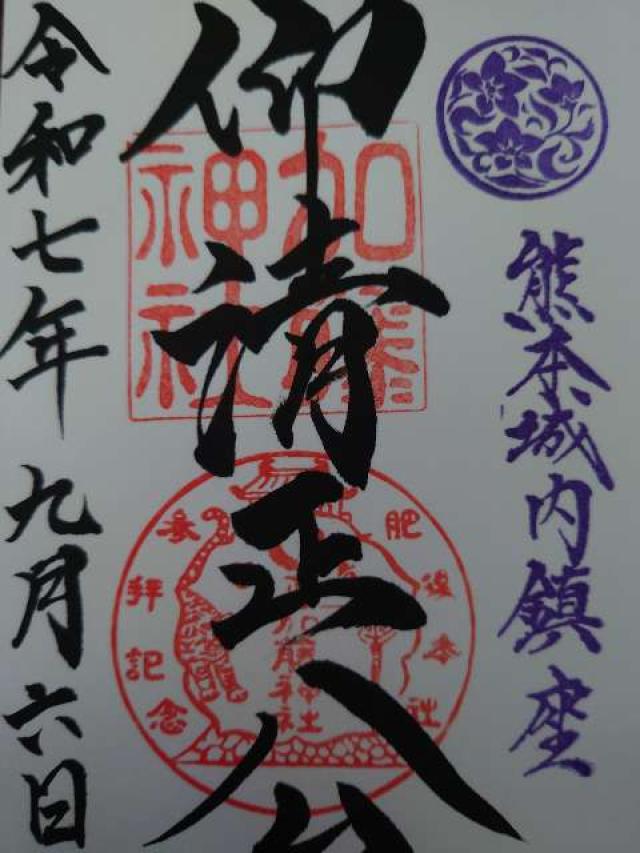 熊本城内鎮座
仰清正公
加藤
神社
肥後本社
参拝記念
加藤神社
令和七年九月六日